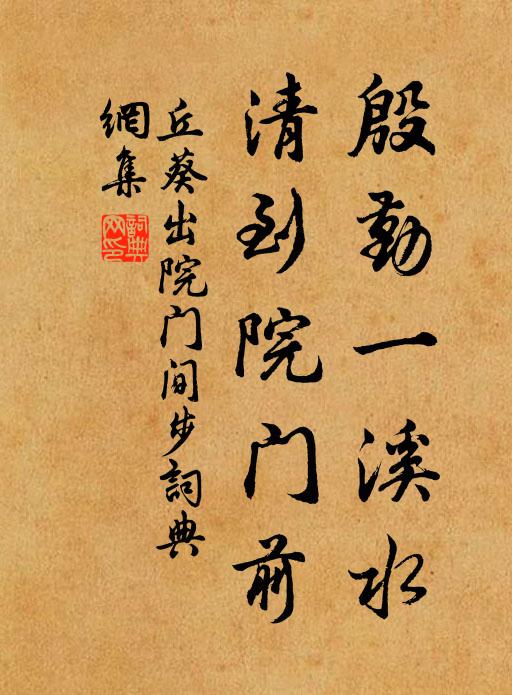 殷勤一溪水
清到院门前
丘葵出院门间步詞典
網集
詞典网印